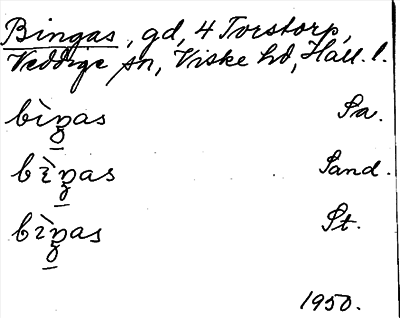 Bingas, gd, 4 Torstorp,
Veddige sn, Viske hd, Hall. l.
bìn̠as Sa.
bìn̠as Sand.
bìn̠as St.
1950.